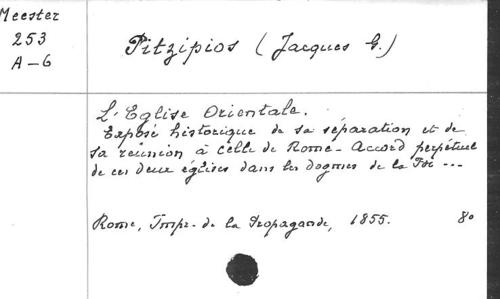 Meester
253
A-6
Pitzipios (Jacques G.)
L'Eglise Orientale.
Exposé historique de sa séparation et de
sa réunion à celle de Rome - Accord perpétuel
de ces deux églises dans les dogmes de la Foi ...
Rome, Impr. de la Propagande, 1855. 8o